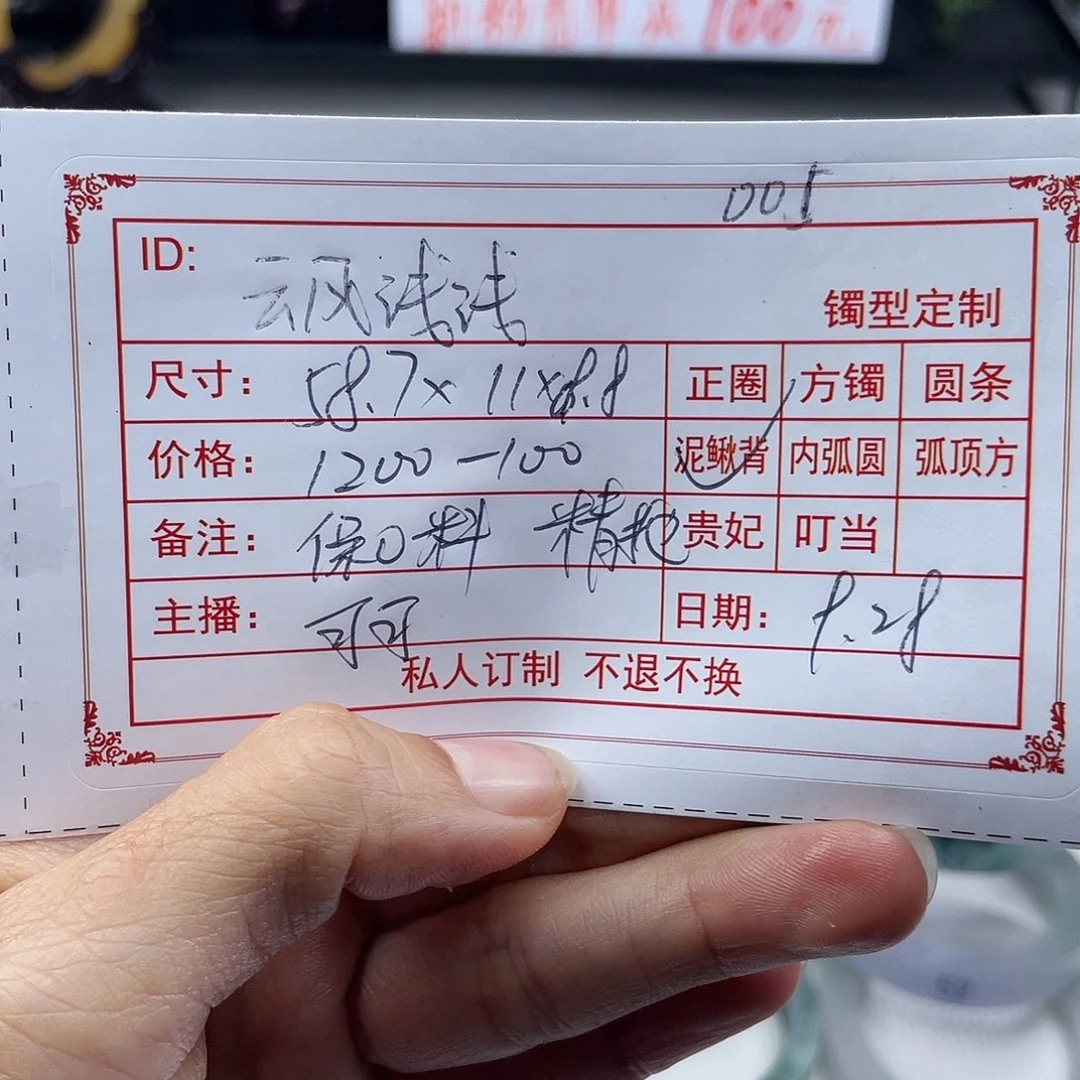 100元
005
ID: 云风浅浅
镯型定制
尺寸: 58.7×11×8.8 正圈 方镯 圆条
价格: 1200-100 泥鳅背 内弧圆 弧顶方
备注: 保口料 精抛 贵妃 叮当
主播: 可可 日期: 8.28
私人订制 不退不换